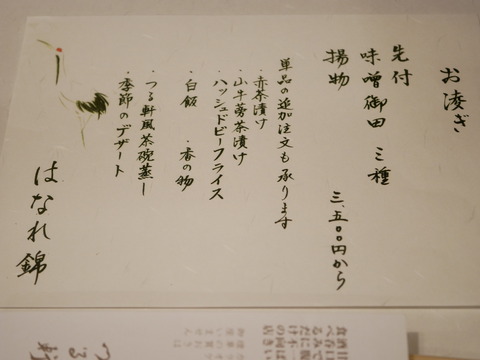 お凌ぎ
先付
味噌御田 三種
揚物
三、五〇〇円から
単品の追加注文も承ります
・赤茶漬け
・山牛蒡茶漬け
・ハッシュドビーフライス
・白飯 ・香の物
・つる軒風茶碗蒸し
・季節のデザート
はなれ錦